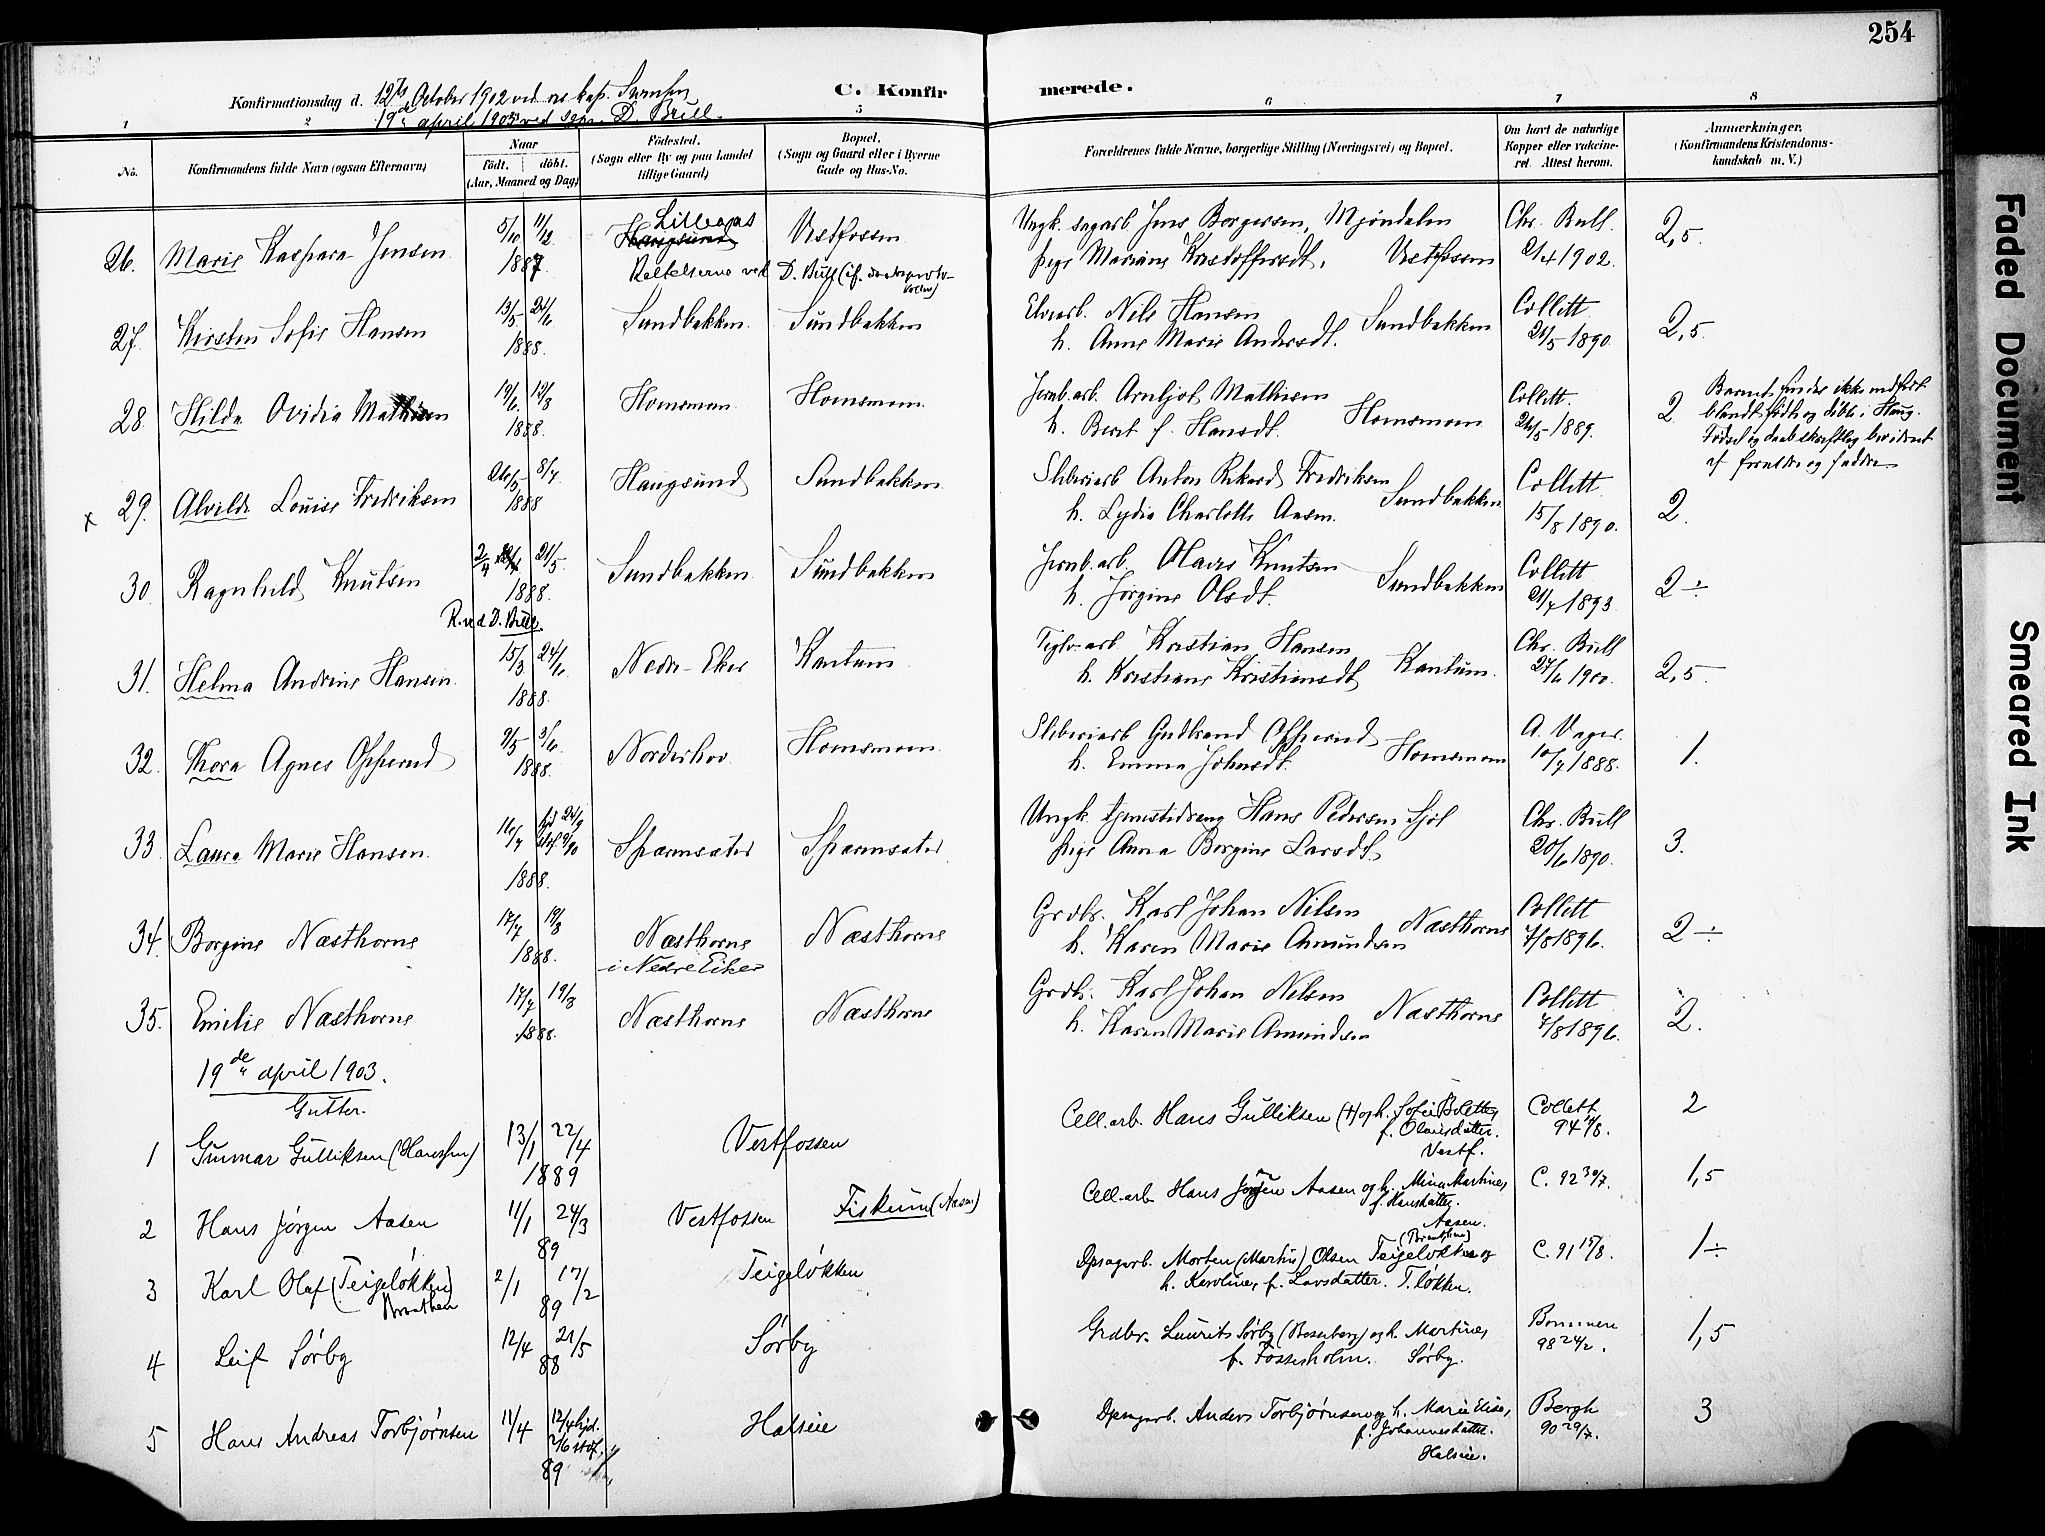 254
Konfirmationsdag d. 12te October 1902 ved
19de april 1903 ved D. Bull.
C. Konfirmerede.
1 2 5 6 7 8
No.
Konfirmandens fulde Navn (ogsaa Efternavn)
Naar
født. døbt.
(Aar, Maaned og Dag)
Fødested.
(Sogn eller By og paa Landet
tillige Gaard)
Bopæl.
(Sogn og Gaard eller i Byerne
Gade og Hus-No.
Forældrenes fulde Navne, borgerlige Stilling (Næringsvei) og Bopæl.
Om havt de naturlige
Kopper eller vaccine-
ret. Attest herom.
Anmærkninger.
(Konfirmandens Kristendoms-
kundskab m. V.)
26. Marie Kaspara Jensen 5/10 11/12 1887 Vestfossen Ungk. sagarb. Jens Borgersen, Mjøndalen Chr. Bull. 2,5.
Rettelserne ved D. Bull pige Mariane Kristoffersdt. Vestfossen 2/4 1902.
27. Kirsten Sofie Hansen 13/5 24/6 1888. Sundbakken. Sundbakken Elvearb. Nils Hansen Collett 2,5.
h. Anne Marie Andersdt. Sundbakken 21/5 1890.
28. Hilda Ovidia Mathisen 19/6 19/8 1888. Homsmoen Homsmoen. Jernb.arb. Arntjof Mathisen Collett. 2
h. Beret f. Hansdt. Homsmoen 26/5 1889.
Barnet findes ikke indført
blandt fødte og døbte i Haug.
Fødsel og daab skriftlig bevidnet
af forældre og faddre
x 29. Alvilde Louise Fredriksen 26/5 8/7 1888 Haugsund Sundbakken Sliberiarb Anton Rikard Fredriksen Collett 2.
h. Lydia Charlotte Aasen. Sundbakken 15/8 1890.
30. Ragnhild Knutsen 2/4 21/5 1888. Sundbakken Sundbakken Jernb.arb. Olaves Knutsen Collett 2÷
R. ved D. Bull. h. Jørgine Olsdt. Sundbakken 21/7 1893.
31. Helma Andrine Hansen 15/3 24/6 1888. Nedre-Eker Kantum Teglv.arb. Kristian Hansen Chr. Bull 2,5.
h. Kristiane Kristiansdt. Kantum. 27/6 1900.
32. Thora Agnes Opperud 9/5 3/6 1888. Norderhov. Homsmoen. Sliberiarb Gudbrand Opperud A. Vager. 1.
h. Emma Johnsdt. Homsmoen 10/7 1888.
33. Laura Marie Hansen 16/7 hjd 24/9 stadf. 9/10 1888. Sparnsæter Sparnsæter Ungk. tjenestedreng Hans Pedersen Chr. Bull 3.
pige Anna Borgine Larsdt. 20/6 1890.
34. Borgine Næsthorne 17/7 19/8 1888. Næsthorne i Nedre Eiker Næsthorne Grdbr. Karl Johan Nilsen Collett 2÷
h. Karen Marie Amundsen Næsthorne 7/8 1896.
35. Emilie Næsthorne 17/7 19/8 1888. Næsthorne Næsthorne Grdbr. Karl Johan Nilsen Collett 2.
h. Karen Marie Amundsen Næsthorne 7/8 1896.
19de april 1903.
Gutter.
1 Gunnar Gulliksen (Hanssen) 13/1 22/4 1889 Vestfossen Cell.arb. Hans Gulliksen (†) og h. Sofie Bolette, Collett 2
f. Olausdatter. Vestf. 94 /8.
2 Hans Jørgen Aasen 11/1 24/3 89 Vestfossen Fiskum (Aasen) Cell-arb. Hans Jørgen Aasen og h. Mina Martine, C. 92 30/7. 1,5
f. Hansdatter. Aasen.
3 Karl Olaf (Teigeløkken) Braathen 2/1 17/2 89 Teigeløkken Dpsagarb. Morten (Martin) Olsen (Braathen) Teigeløkken og C. 91 15/8. 1÷
h. Karoline, f. Larsdatter. T.løkken.
4 Leif Sørby 12/4 21/5 88 Sørby Grdbr. Laurits Sørby (Rosenberg) og h. Martine, 98 24/2. 1,5
f. Fossesholm. Sørby.
5 Hans Andreas Torbjørnsen 11/4 12/4 hjd. 2/6 stdf. 89 Halseie Dpsagarb. Anders Torbjørnsen og h. Marie Elise, Bergh 3
f. Johannesdatter. Halseie. 90 29/7.
Faded Document
Smeared Ink